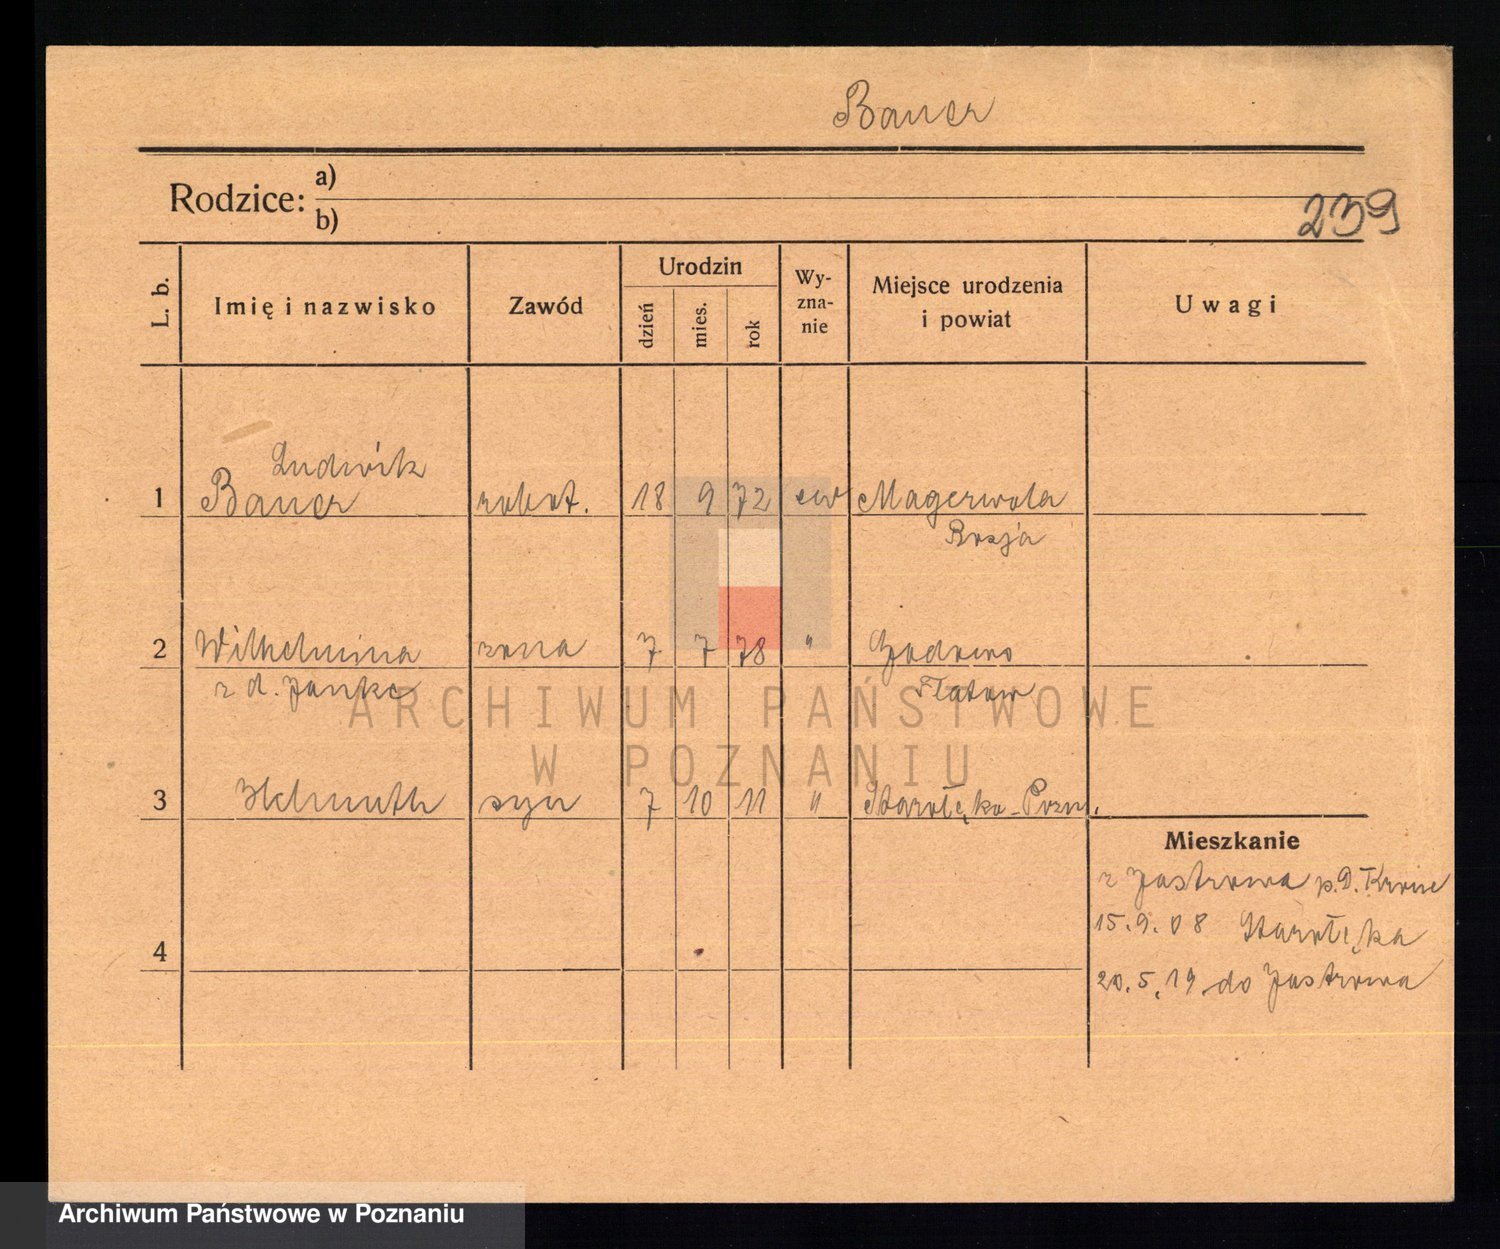 Bauer
Rodzice: a)
b)
239
L. b.
Imię i nazwisko
Zawód
Urodzin
dzień
mies.
rok
Wy-
zna-
nie
Miejsce urodzenia
i powiat
Uwagi
Ludwik
1 Bauer robot. 18 9 72 ew Magerwola
Rosja
2 Wilhelmina żona 7 7 78 "
z d. Janke Flatow
3 Helmuth syn 7 10 11 " Starołęka-Pozn.
Mieszkanie
z Jastrowa p. D. Krone
15.9.08 Starołęka
4
20.5.19 do Jastrowa
ARCHIWUM PAŃSTWOWE
W POZNANIU
Archiwum Państwowe w Poznaniu